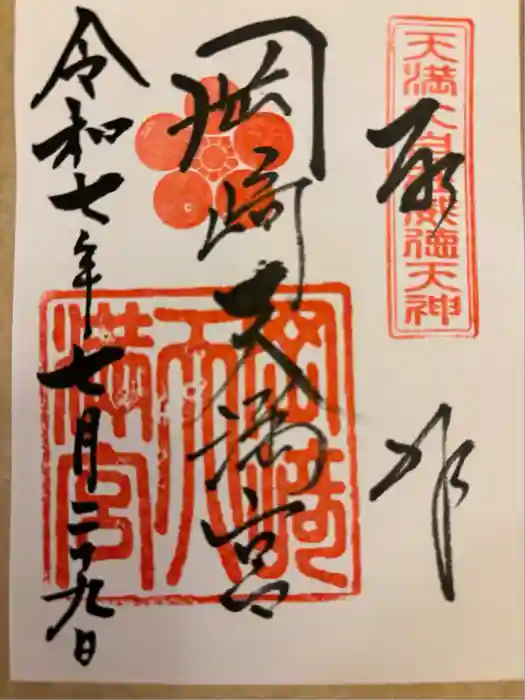 奉拝
天満大自在威徳天神
岡崎天満宮
岡崎
天
満宮
令和七年七月二十九日